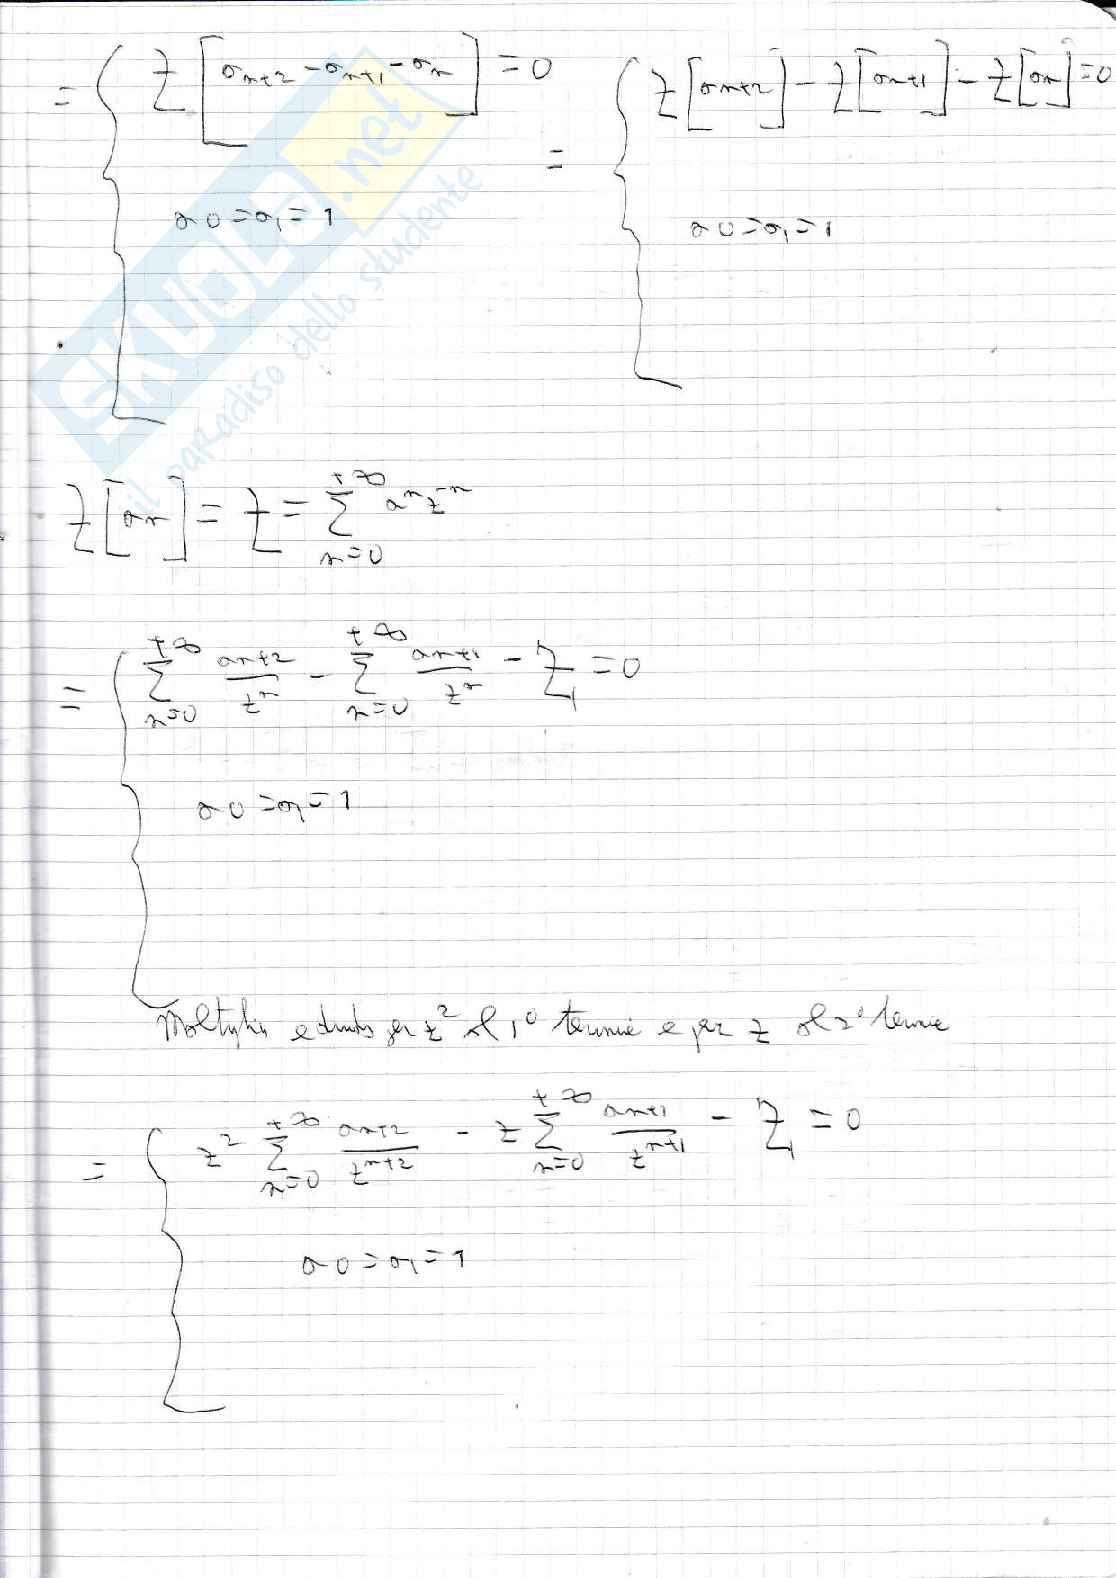 = { Z[a_{n+2} - a_{n+1} - a_n] = 0 = { Z[a_{n+2}] - Z[a_{n+1}] - Z[a_n] = 0
a0 = a1 = 1 a0 = a1 = 1
SKUOLA.net
il paradiso dello studente
Z[a_n] = Z = \sum_{n=0}^{+∞} a^n z^{-n}
= { \sum_{n=0}^{+∞} \frac{a_{n+2}}{z^n} - \sum_{n=0}^{+∞} \frac{a_{n+1}}{z^n} - Z_1 = 0
a0 = a1 = 1
Moltiplico e divido per z² al 1° termine e per z al 2° termine
= { z² \sum_{n=0}^{+∞} \frac{a_{n+2}}{z^{n+2}} - z \sum_{n=0}^{+∞} \frac{a_{n+1}}{z^{n+1}} - Z_1 = 0
a0 = a1 = 1